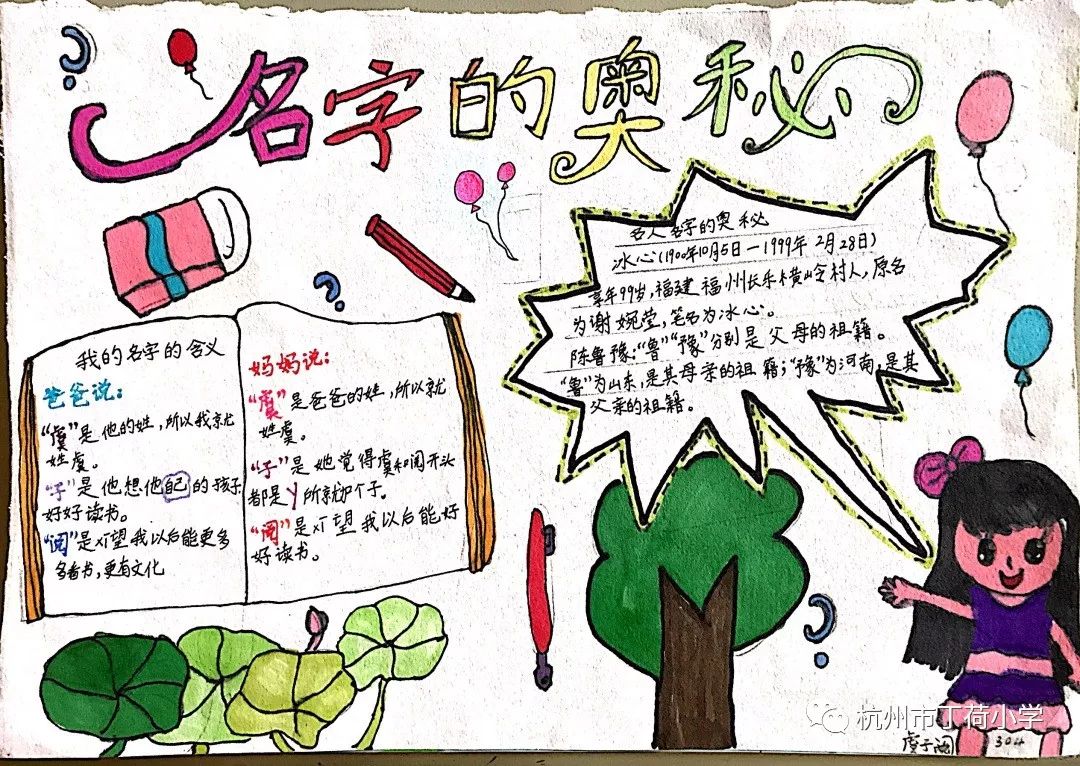 名字的奥秘
我的名字的含义
爸爸说:
“虞”是他的姓,所以我就
姓虞。
“子”是他想他自己的孩子
好好读书。
“阅”是希望我以后能更多
多看书,更有文化
妈妈说:
“虞”是爸爸的姓,所以就
姓虞。
“子”是她觉得虞和阅开头
都是丫所就个子。
“阅”是希望我以后能好
好读书。
名人名字的奥秘
冰心(1900年10月5日—1999年2月28日)
享年99岁,福建福州长乐横岭村人,原名
为谢婉莹,笔名为冰心。
陈鲁豫:“鲁”“豫”分别是父母的祖籍。
“鲁”为山东,是其母亲的祖籍;“豫”为河南,是其
父亲的祖籍。
虞子阅 304
杭州市丁荷小学